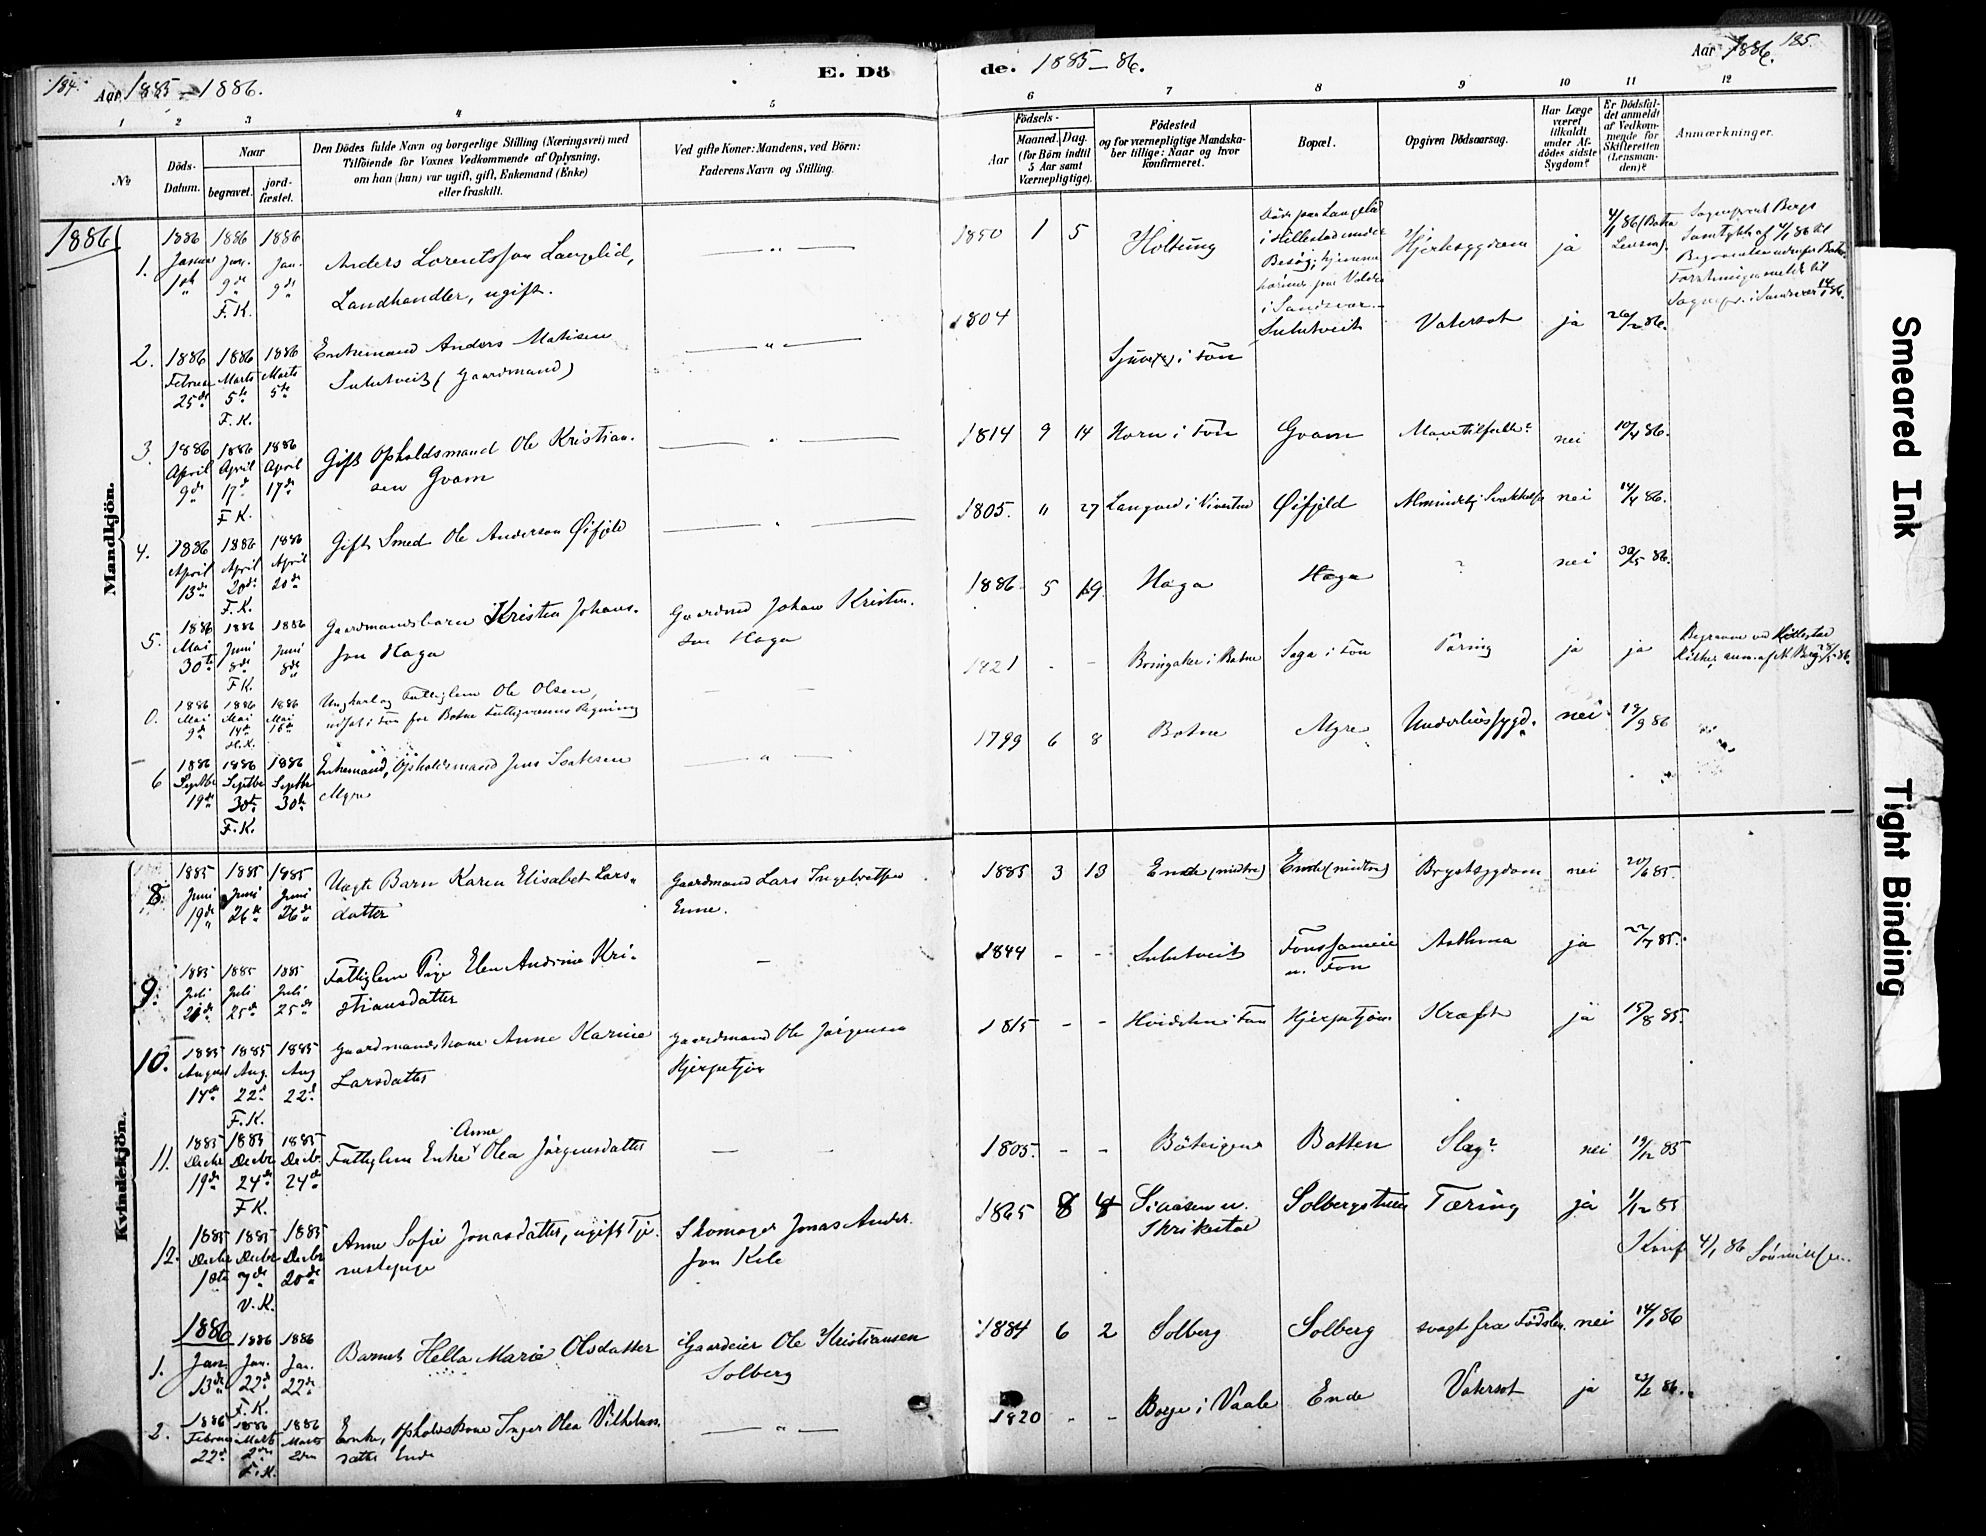 184.
Aar 1885-1886.
E. Dö
de. 1885-86.
Aar 1886.
185.
1
2
3
4
5
6
7
8
9
10
11
12
No
Döds-
Datum.
Naar
begravet.
jord-
fæstet.
Den Dödes fulde Navn og borgerlige Stilling (Næringsvei) med
Tilföiende for Voxnes Vedkommende af Oplysning,
om han (hun) var ugift, gift, Enkemand (Enke)
eller fraskilt.
Ved gifte Koner: Mandens, ved Börn:
Faderens Navn og Stilling.
Födsels-
Aar
Maaned.
Dag.
(for Börn indtil
5 Aar samt
Værnepligtige).
Födested
og for værnepligtige Mandska-
ber tillige: Naar og hvor
konfirmeret.
Bopæl.
Opgiven Dödsaarsag.
Har Læge
været
tilkaldt
under Af-
dödes sidste
Sygdom?
Er Dödsfal-
det anmeldt
af Vedkom-
mende for
Skifteretten
(Lensman-
den)?
Anmærkninger.
Mandkjön.
1886
1. 1886 Januar 1ste 1886 Jan. 9de F.K. 1886 Jan. 9de
Anders Lorentssøn Langelid,
Landhandler, ugift.
1850 1 5 Holtung
Døde paa Langelid
i Hillestad under
Besøg; hjemme
hørende paa
i Sandsvær.
Hjertesygdom ja 4/1 86 (Botne
Lensm).
Sognepræst Bergs
Samtykke af 4/1 86 til
2. 1886 Februar 25de 1886 Marts 5te F.K. 1886 Marts 5te
Enkemand Anders Mathisen
Sulutveit (Gaardmand)
1804 i Fon Sulutveit Vatersot ja 26/2 86.
3. 1886 April 9de 1886 April 17de F.K. 1886 April 17de
Gift Opholdsmand Ole Kristian-
sen Gvam
1814 9 14 Horn i Fon Gvam Mavetilfælde? nei 10/4 86.
4. 1886 April 13de 1886 April 20de F.K. 1886 April 20de
Gift Smed Ole Anderson Øifjeld
1805. " 27 Langved i Vivestad Øifjeld Almindelig Svækkelse nei 14/4 86.
5. 1886 Mai 30te 1886 Juni 8de F.K. 1886 Juni 8de
Gaardmandsbarn Kristen Johans-
søn Haga
Gaardmd Johan Kristen-
søn Haga
1886. 5 19 Haga Haga ? nei 30/5 86.
0. 1886 Mai 9de 1886 Mai 14de H.K. 1886 Mai 16de
Ungkarl og Fattiglem Ole Olsen,
udsat i Fon for Botne Fattigvæsens Regning
1821 - - Bringaker i Botne Saga i Fon Tæring ja ja
Begraven ved Hillestad
Kirke, anm. af N. Berg 28/5 86.
6 1886 Septbr 19de 1886 Septbr 30te F.K. 1886 Septbr 30te
Enkemand, Opholdsmand Jens Isaksen
Myre
1799 6 8 Botne Myre Underlivssygd. nei 19/9 86
Kvindekjön.
8. 1885 Juni 19de 1885 Juni 26de 1885 Juni 26de
Uægte Barn Karen Elisabet Lars-
datter
Gaardmand Lars Ingebretsen
Enne.
1885 3 13 Ende (midtre) Ende (midtre) Brystsygdom nei 20/6 85.
9. 1885 Juli 21de 1885 Juli 25de 1885 Juli 25de
Fattiglem Pige Elen Andrine Kri-
stiansdatter
-
1844 - - Sulutveit Fonssameie
u. Fon Asthma ja 22/7 85.
10. 1885 August 14de 1885 Aug. 22de F.K. 1885 Aug 22de
Gaardmandskone Anne Karine
Larsdatter
Gaardmand Ole Jørgensen
Hjerpetjøn
1815 - - Hvidsten i Fon Hjerpetjøn Kræft ja 15/8 85.
11. 1885 Decbr 19de 1885 Decbr 24de F.K. 1885 Decbr 24de
Anne
Fattiglem Enke Olea Jørgensdatter
1805. - - Botten Slag? nei 19/12 85
12. 1885 Decbr 1ste 1885 Decbr 7de V.K. 1885 Decbr 20de
Anne Sofie Jonasdatter, ugift Tje-
nestepige
Skomager Jonas Ander-
søn Kile
1865 8 4 Siaasen u.
Skrikestad Solbergstuen Tæring ja 1/12 85
4/1 86
1886
1. Jan. 13de 1886 Jan. 22de F.K. 1886 Jan. 22de
Barnet Hella Marie Olsdatter
Gaardeier Ole Kristiansen
Solberg
1884 6 2 Solberg Solberg svagt fra Födslen. nei 14/1 86
2. 1886 Februar 22de 1886 Marts 2den F.K. 1886 Marts 2den
Enke, Opholdskone Inger Olea Vilhelms-
datter Ende
1820 - - Borge i Vaale Ende Vatersot ja 23/2 86.
Smeared Ink
Tight Binding